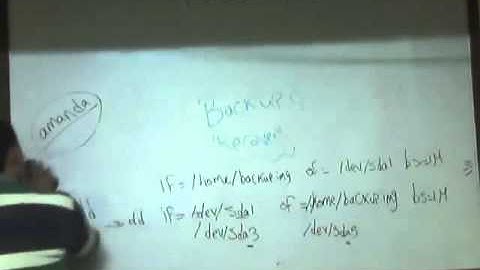 amanda
Backup &
if = /home/backup.img of = /dev/sda1 bs=1M
dd if = /dev/sda1 of = /home/backup.img bs=1M
/dev/sda3 /dev/sda5